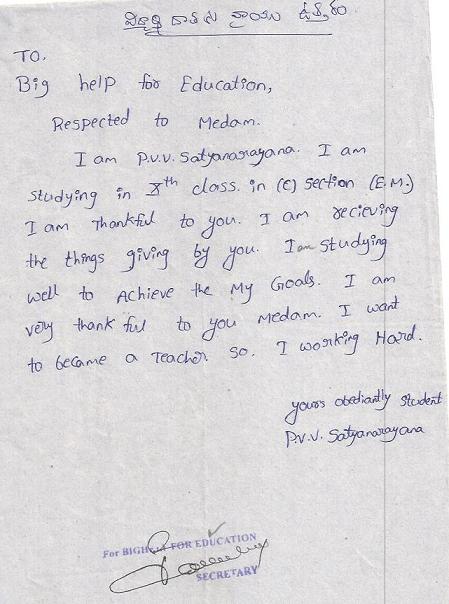 విద్యార్థి దాతకు వ్రాయు ఉత్తరం
TO,
Big help for Education,
Respected to Medam.
I am P.V.V. Satyanarayana. I am
studying in Xth class. in (C) Section (E.M.)
I am Thankful to you. I am recieving
the things giving by you. I am studying
well to Achieve the My Goals. I am
very thank ful to you Medam. I want
to became a Teacher. So. I working Hard.
yours obediantly Student
P.V.V. Satyanarayana
For BIGHELP FOR EDUCATION
SECRETARY